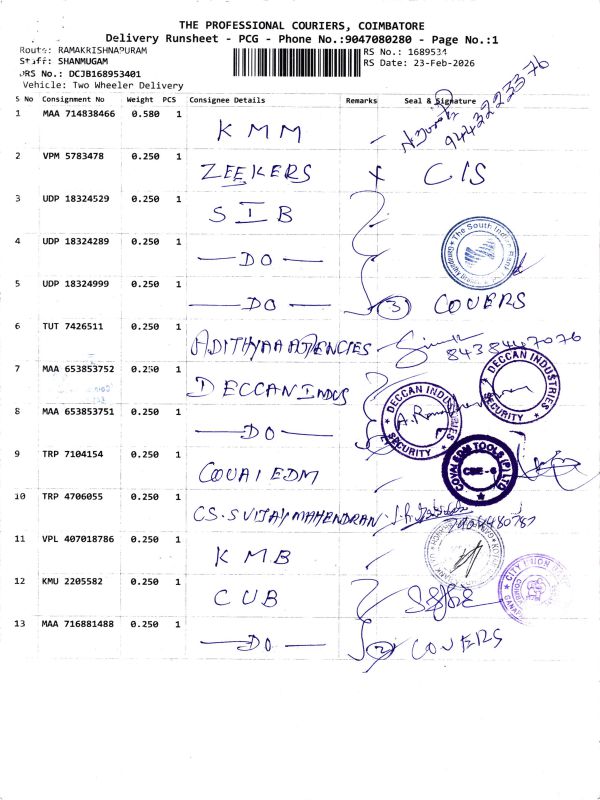 THE PROFESSIONAL COURIERS, COIMBATORE
Delivery Runsheet - PCG - Phone No.:9047080280 - Page No.:1
Route: RAMAKRISHNAPURAM RS No.: 1689534
Staff: SHANMUGAM RS Date: 23-Feb-2026
DRS No.: DCJB168953401
Vehicle: Two Wheeler Delivery
S No Consignment No Weight PCS Consignee Details Remarks Seal & Signature
1 MAA 714838466 0.580 1 KMM 9443223376
2 VPM 5783478 0.250 1 ZEEKERS CIS
3 UDP 18324529 0.250 1 SIB
4 UDP 18324289 0.250 1 —DO— The South Indian Bank
5 UDP 18324999 0.250 1 —DO— 3 COVERS
6 TUT 7426511 0.250 1 ADITHYAA AJENCIES 8438447076
7 MAA 653853752 0.250 1 DECCAN INDUS DECCAN INDUSTRIES SECURITY DECCAN INDUSTRIES SECURITY
8 MAA 653853751 0.250 1 —DO—
9 TRP 7104154 0.250 1 COVAI EDM COVAI EDM TOOLS (P) LTD CBE-6
10 TRP 4706055 0.250 1 CS. SVIJAY MAHENDRAN
11 VPL 407018786 0.250 1 KMB
12 KMU 2205582 0.250 1 CUB CITY UNION
13 MAA 716881488 0.250 1 —DO— 2 COVERS